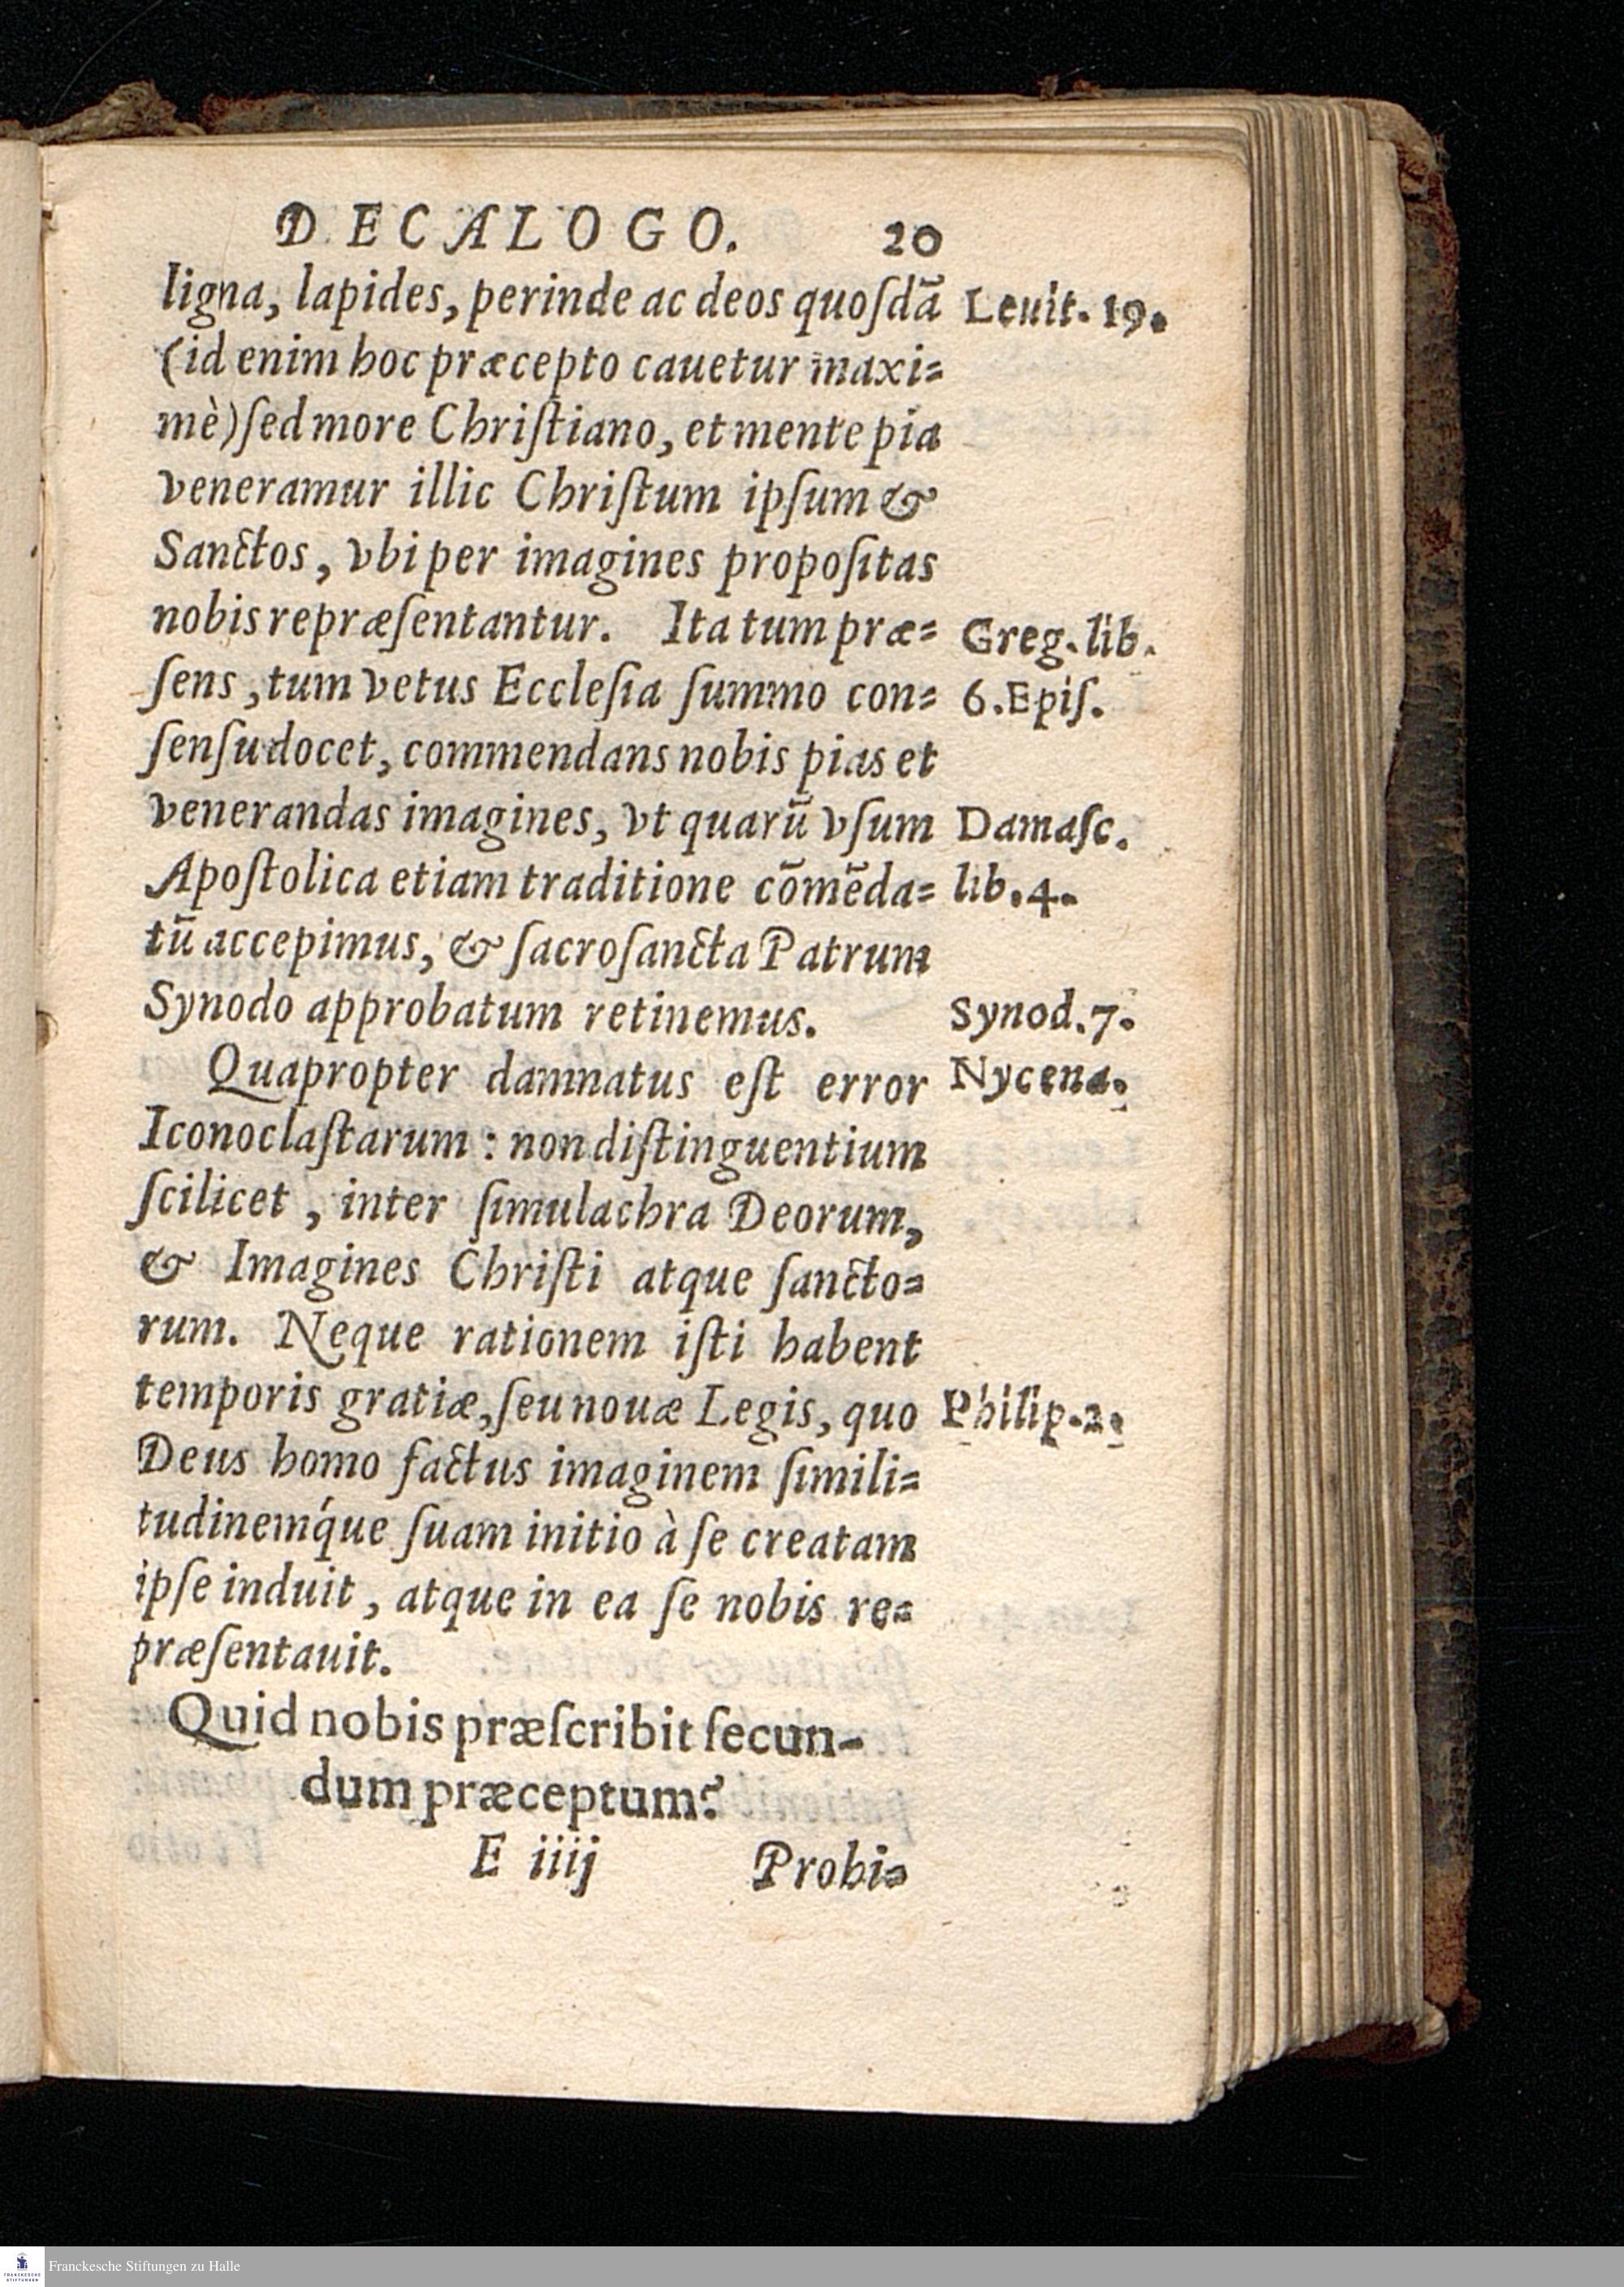 DECALOGO. 20
ligna, lapides, perinde ac deos quoſdā
Leuit. 19.
(id enim hoc præcepto cauetur maxi=
mè) ſed more Chriſtiano, et mente pia
veneramur illic Chriſtum ipſum &
Sanctos, vbi per imagines propoſitas
nobis repræſentantur. Ita tum præ=
Greg. lib.
ſens, tum vetus Eccleſia ſummo con=
6. Epiſ.
ſenſu docet, commendans nobis pias et
venerandas imagines, vt quarū vſum
Damaſc.
Apoſtolica etiam traditione cōmēda=
lib. 4.
tū accepimus, & ſacroſancta Patrum
Synodo approbatum retinemus.
Synod. 7.
Quapropter damnatus eſt error
Nycena.
Iconoclaſtarum : non diſtinguentium
ſcilicet, inter ſimulachra Deorum,
& Imagines Chriſti atque ſancto=
rum. Neque rationem iſti habent
temporis gratiæ, ſeu nouæ Legis, quo
Philip. 2.
Deus homo factus imaginem ſimili=
tudinemq́ue ſuam initio à ſe creatam
ipſe induit, atque in ea ſe nobis re=
præſentauit.
Quid nobis præſcribit ſecun-
dum præceptum?
E iiij Prohi=
FRANCKESCHE STIFTUNGEN
Franckesche Stiftungen zu Halle